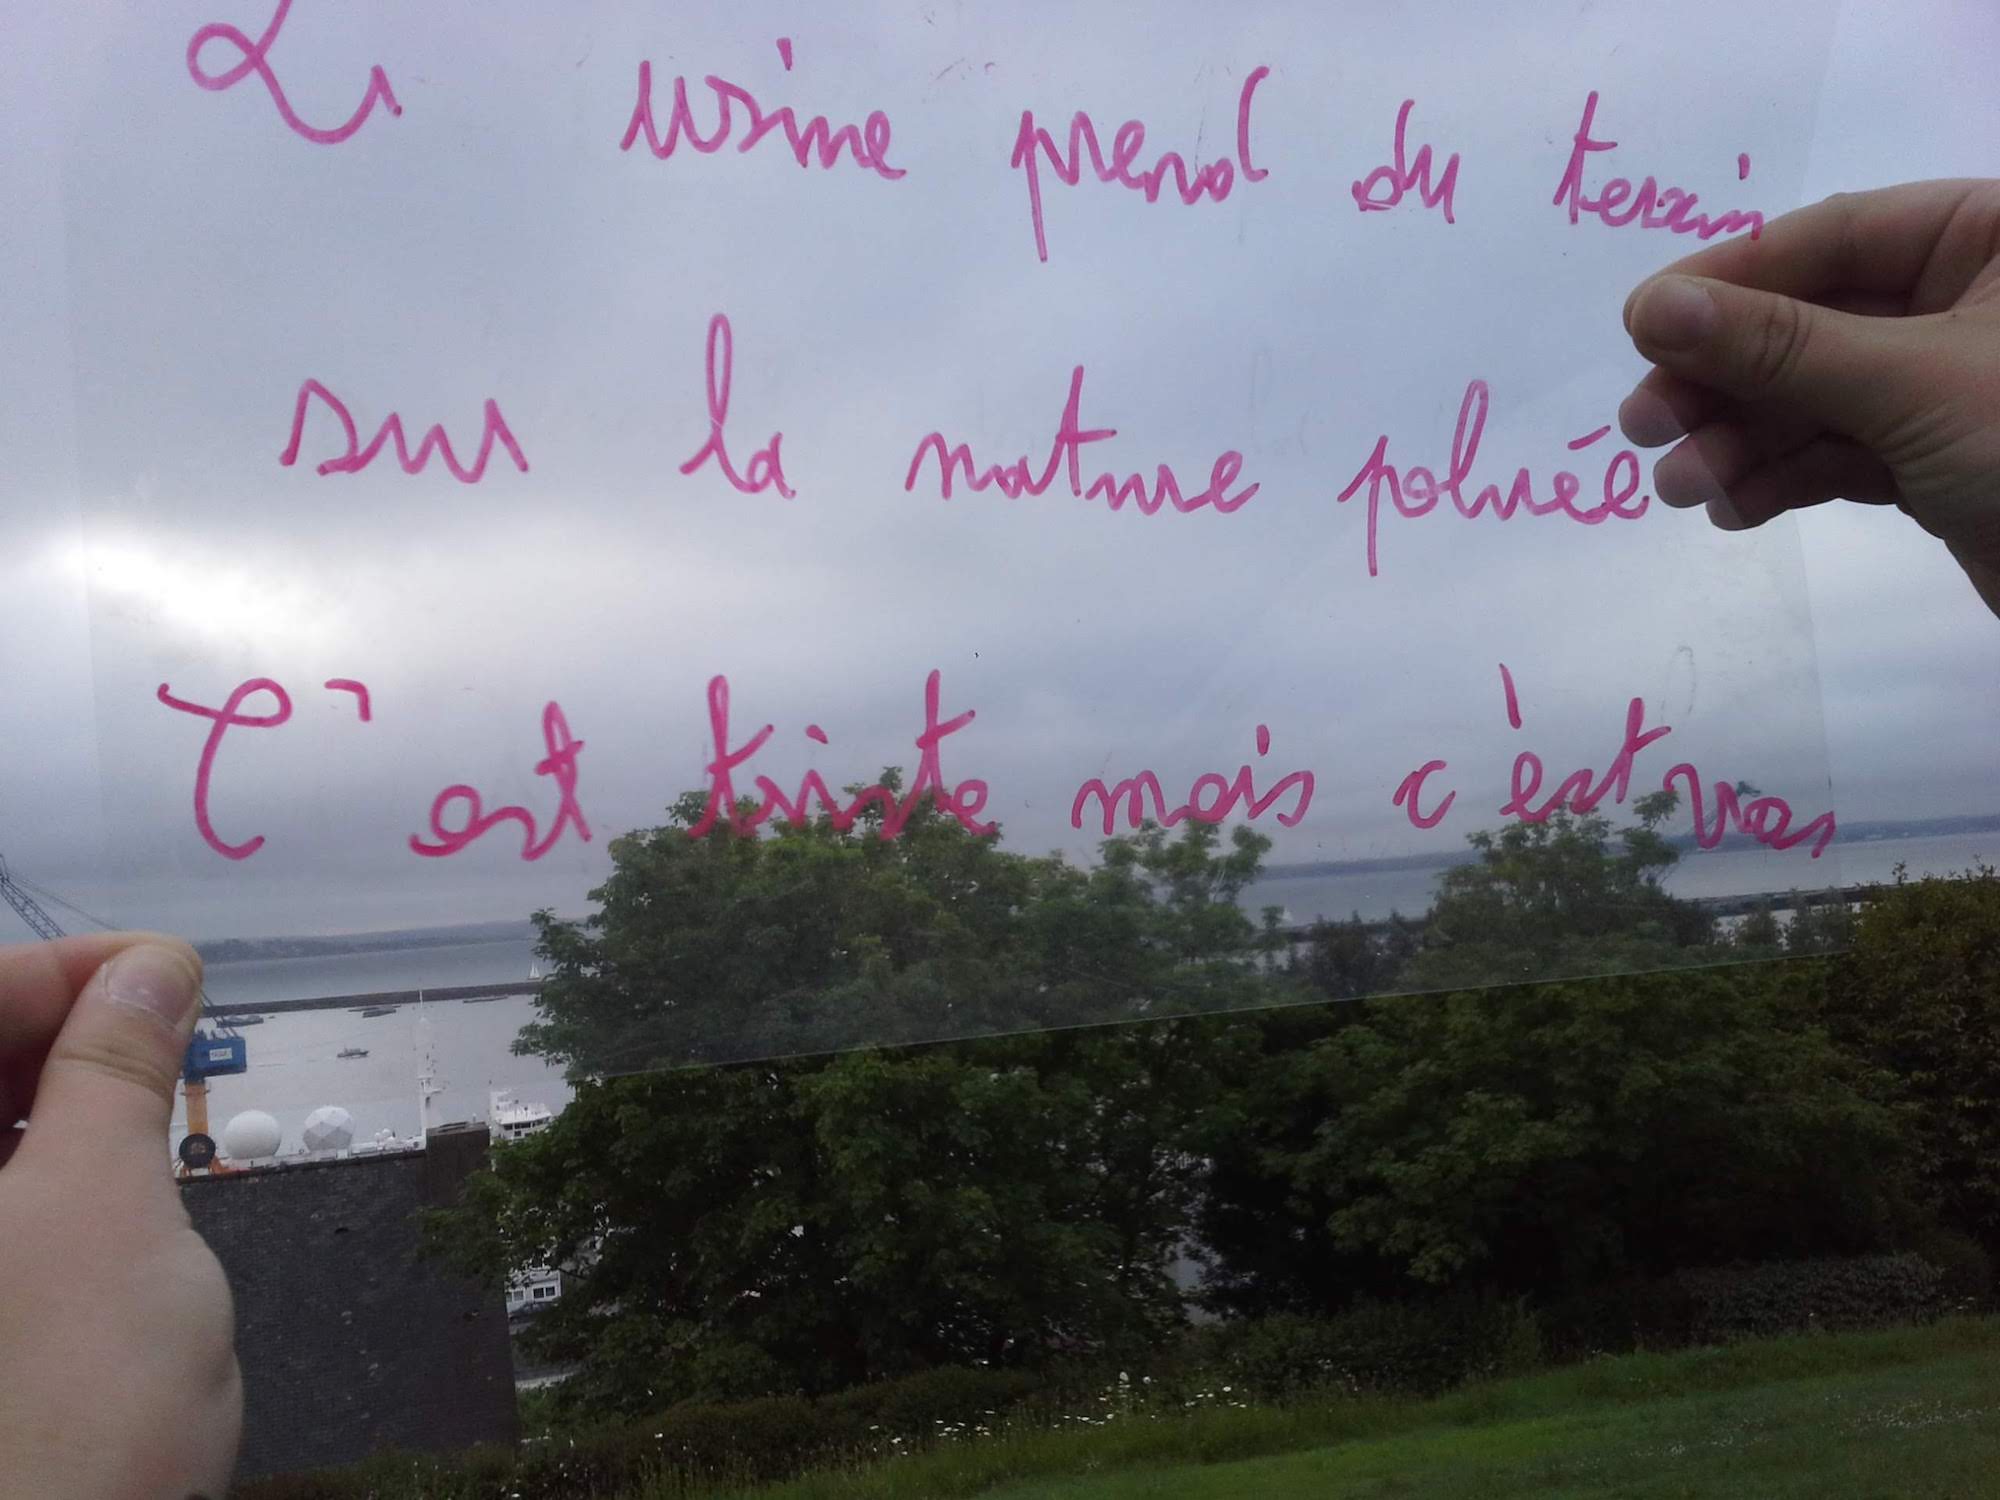 L' usine prend du terain
sur la nature poluée
C'est triste mais c'est vrai